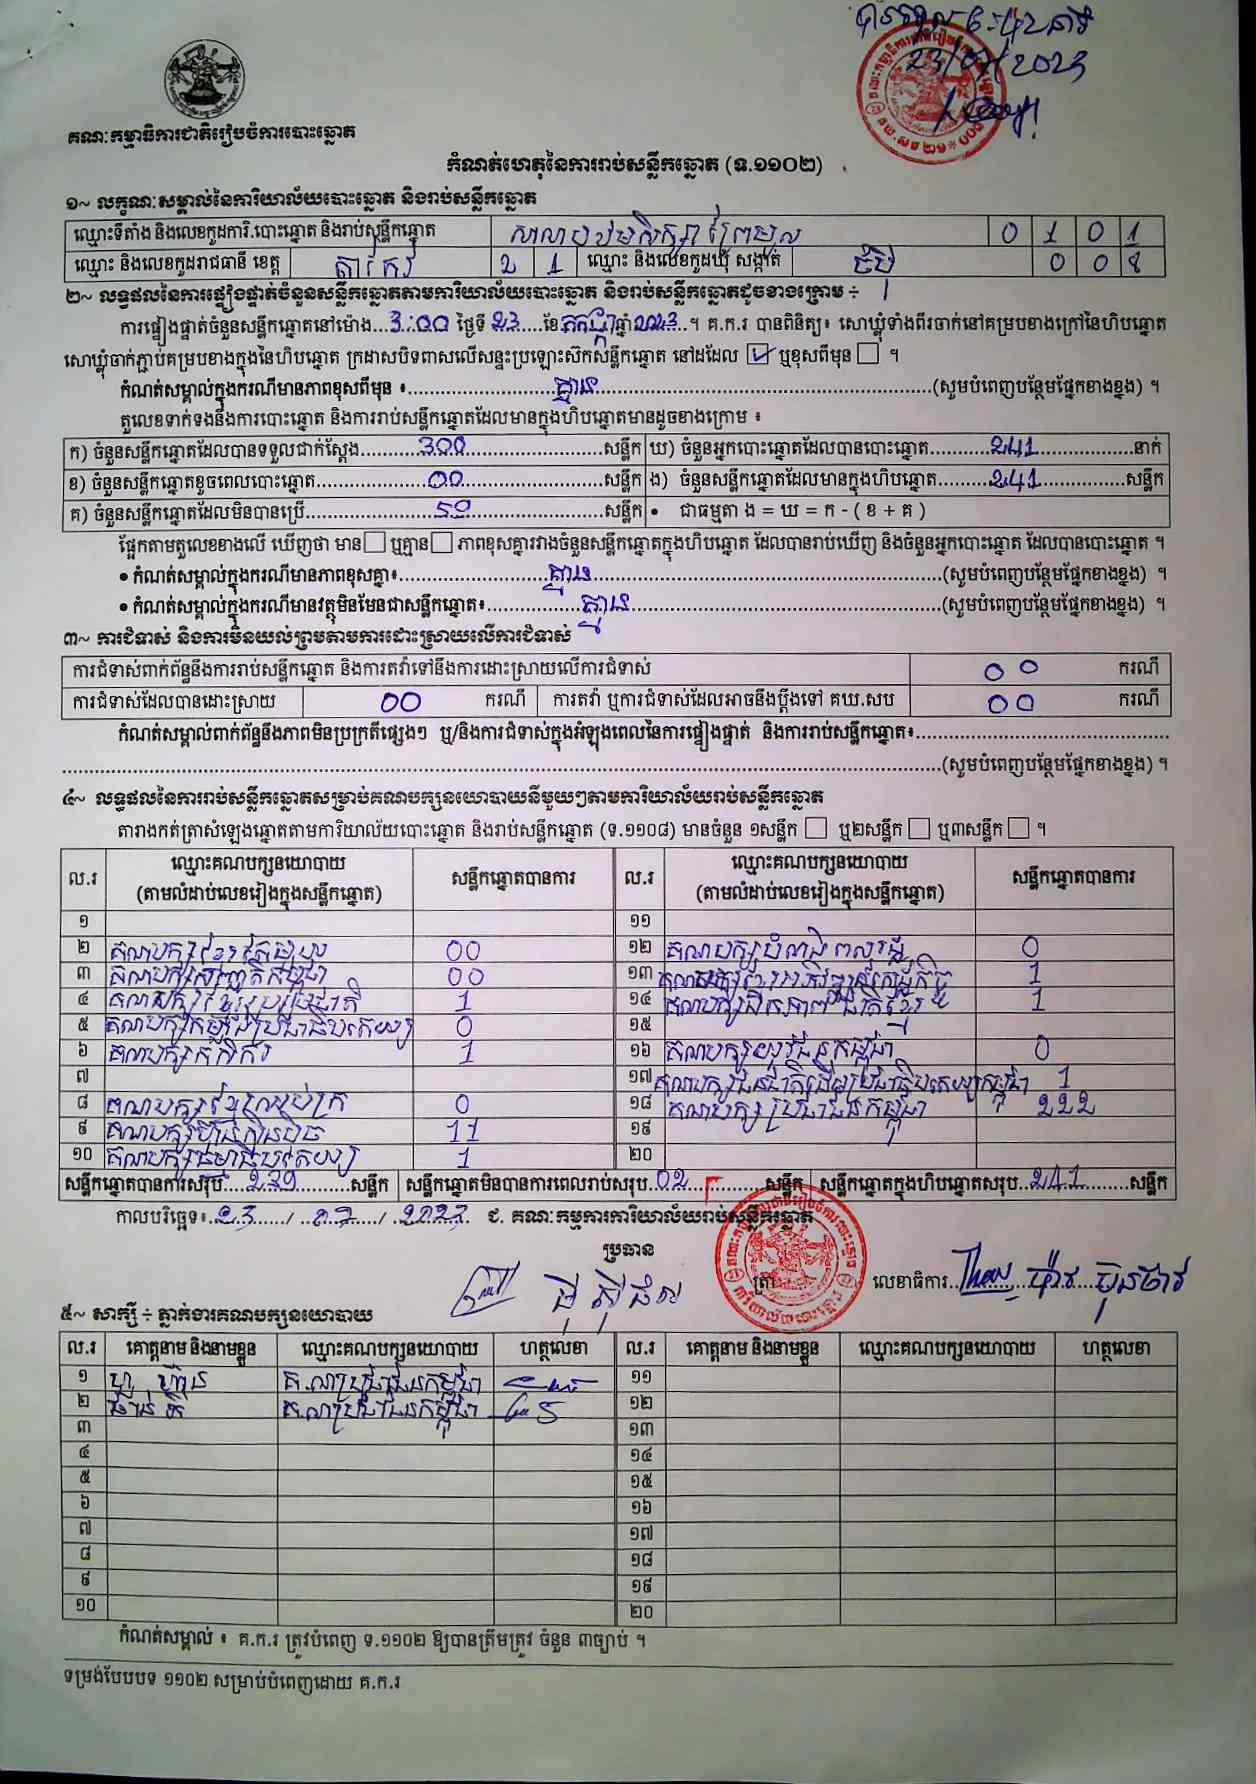 23/07/2023
គណៈកម្មាធិការជាតិរៀបចំការបោះឆ្នោត
កំណត់ហេតុនៃការរាប់សន្លឹកឆ្នោត (ទ.១១០២)
១~ លក្ខណៈសម្គាល់នៃការិយាល័យបោះឆ្នោត និងរាប់សន្លឹកឆ្នោត
ឈ្មោះទីតាំង និងលេខកូដការិ.បោះឆ្នោត និងរាប់សន្លឹកឆ្នោត សាលាបឋមសិក្សា ព្រៃមូល 0 1 0 1
ឈ្មោះ និងលេខកូដរាជធានី ខេត្ត តាកែវ 2 1 ឈ្មោះ និងលេខកូដឃុំ សង្កាត់ 0 0 8
២~ លទ្ធផលនៃការផ្ទៀងផ្ទាត់ចំនួនសន្លឹកឆ្នោតតាមការិយាល័យបោះឆ្នោត និងរាប់សន្លឹកឆ្នោតដូចខាងក្រោម ÷
ការផ្ទៀងផ្ទាត់ចំនួនសន្លឹកឆ្នោតនៅម៉ោង...3:00 ថ្ងៃទី 23 ....ខែកក្កដាឆ្នាំ2023..។ គ.ក.រ បានពិនិត្យ៖ សោឃ្លុំទាំងពីរចាក់នៅគម្របខាងក្រៅនៃហិបឆ្នោត
សោឃ្លុំចាក់ភ្ជាប់គម្របខាងក្នុងនៃហិបឆ្នោត ក្រដាសបិទពាសលើសន្ទះប្រឡោះស៊កសន្លឹកឆ្នោត នៅដដែល ☑ ឬខុសពីមុន ☐ ។
កំណត់សម្គាល់ក្នុងករណីមានភាពខុសពីមុន ៖..........គ្មាន..........(សូមបំពេញបន្ថែមផ្នែកខាងខ្នង) ។
តួលេខទាក់ទងនឹងការបោះឆ្នោត និងការរាប់សន្លឹកឆ្នោតដែលមានក្នុងហិបឆ្នោតមានដូចខាងក្រោម ៖
ក) ចំនួនសន្លឹកឆ្នោតដែលបានទទួលជាក់ស្តែង..........300..........សន្លឹក ឃ) ចំនួនអ្នកបោះឆ្នោតដែលបានបោះឆ្នោត..........241..........នាក់
ខ) ចំនួនសន្លឹកឆ្នោតខូចពេលបោះឆ្នោត..........00..........សន្លឹក ង) ចំនួនសន្លឹកឆ្នោតដែលមានក្នុងហិបឆ្នោត..........241..........សន្លឹក
គ) ចំនួនសន្លឹកឆ្នោតដែលមិនបានប្រើ..........59..........សន្លឹក • ជាធម្មតា ង = ឃ = ក - ( ខ + គ )
ផ្អែកតាមតួលេខខាងលើ ឃើញថា មាន☐ ឬគ្មាន☐ ភាពខុសគ្នារវាងចំនួនសន្លឹកឆ្នោតក្នុងហិបឆ្នោត ដែលបានរាប់ឃើញ និងចំនួនអ្នកបោះឆ្នោត ដែលបានបោះឆ្នោត ។
• កំណត់សម្គាល់ក្នុងករណីមានភាពខុសគ្នា៖..........គ្មាន..........(សូមបំពេញបន្ថែមផ្នែកខាងខ្នង) ។
• កំណត់សម្គាល់ក្នុងករណីមានវត្ថុមិនមែនជាសន្លឹកឆ្នោត៖..........គ្មាន..........(សូមបំពេញបន្ថែមផ្នែកខាងខ្នង) ។
៣~ ការជំទាស់ និងការមិនយល់ព្រមតាមការដោះស្រាយលើការជំទាស់
ការជំទាស់ពាក់ព័ន្ធនឹងការរាប់សន្លឹកឆ្នោត និងការតវ៉ាទៅនឹងការដោះស្រាយលើការជំទាស់ 00 ករណី
ការជំទាស់ដែលបានដោះស្រាយ 00 ករណី ការតវ៉ា ឬការជំទាស់ដែលអាចនឹងប្តឹងទៅ គឃ.សប 00 ករណី
កំណត់សម្គាល់ពាក់ព័ន្ធនឹងភាពមិនប្រក្រតីផ្សេងៗ ឬ/និងការជំទាស់ក្នុងអំឡុងពេលនៃការផ្ទៀងផ្ទាត់ និងការរាប់សន្លឹកឆ្នោត៖..........
..........(សូមបំពេញបន្ថែមផ្នែកខាងខ្នង) ។
៤~ លទ្ធផលនៃការរាប់សន្លឹកឆ្នោតសម្រាប់គណបក្សនយោបាយនីមួយៗតាមការិយាល័យរាប់សន្លឹកឆ្នោត
តារាងកត់ត្រាសំឡេងឆ្នោតតាមការិយាល័យបោះឆ្នោត និងរាប់សន្លឹកឆ្នោត (ទ.១១០៨) មានចំនួន ១សន្លឹក ☐ ឬ២សន្លឹក ☐ ឬ៣សន្លឹក ☐ ។
ល.រ ឈ្មោះគណបក្សនយោបាយ (តាមលំដាប់លេខរៀងក្នុងសន្លឹកឆ្នោត) សន្លឹកឆ្នោតបានការ ល.រ ឈ្មោះគណបក្សនយោបាយ (តាមលំដាប់លេខរៀងក្នុងសន្លឹកឆ្នោត) សន្លឹកឆ្នោតបានការ
១ ១១
២ គណបក្សខ្មែរតែមួយ 00 ១២ គណបក្សបំណងពលរដ្ឋ 0
៣ គណបក្ស 00 ១៣ គណបក្សខ្មែរអភិវឌ្ឍន៍សេដ្ឋកិច្ច 1
៤ គណបក្សខ្មែររួបរួមជាតិ 1 ១៤ គណបក្សឯកភាពជាតិខ្មែរ 1
៥ គណបក្សកម្លាំងប្រជាធិបតេយ្យ 0 ១៥
៦ គណបក្សកសិករ 1 ១៦ គណបក្សយុវជនកម្ពុជា 0
៧ ១៧ គណបក្សជនជាតិដើមប្រជាធិបតេយ្យកម្ពុជា 1
៨ គណបក្សខ្មែរអភិរក្ស 0 ១៨ គណបក្សប្រជាជនកម្ពុជា 222
៩ គណបក្សហ៊្វុនស៊ិនប៉ិច 11 ១៩
១០ គណបក្សធម្មាធិបតេយ្យ 1 ២០
សន្លឹកឆ្នោតបានការសរុប...239..........សន្លឹក សន្លឹកឆ្នោតមិនបានការពេលរាប់សរុប..02..........សន្លឹក សន្លឹកឆ្នោតក្នុងហិបឆ្នោតសរុប..241..........សន្លឹក
កាលបរិច្ឆេទ៖..23....../ ..07..../ ..2023. ជ. គណៈកម្មការការិយាល័យរាប់សន្លឹកឆ្នោត
ប្រធាន
ត្រា លេខាធិការ
៥~ សាក្សី ÷ ភ្នាក់ងារគណបក្សនយោបាយ
ល.រ គោត្តនាម និងនាមខ្លួន ឈ្មោះគណបក្សនយោបាយ ហត្ថលេខា ល.រ គោត្តនាម និងនាមខ្លួន ឈ្មោះគណបក្សនយោបាយ ហត្ថលេខា
១ គ.ណប្រជាជនកម្ពុជា ១១
២ គ.ណប្រជាជនកម្ពុជា ១២
៣ ១៣
៤ ១៤
៥ ១៥
៦ ១៦
៧ ១៧
៨ ១៨
៩ ១៩
១០ ២០
កំណត់សម្គាល់ ៖ គ.ក.រ ត្រូវបំពេញ ទ.១១០២ ឱ្យបានត្រឹមត្រូវ ចំនួន ៣ច្បាប់ ។
ទម្រង់បែបបទ ១១០២ សម្រាប់បំពេញដោយ គ.ក.រ